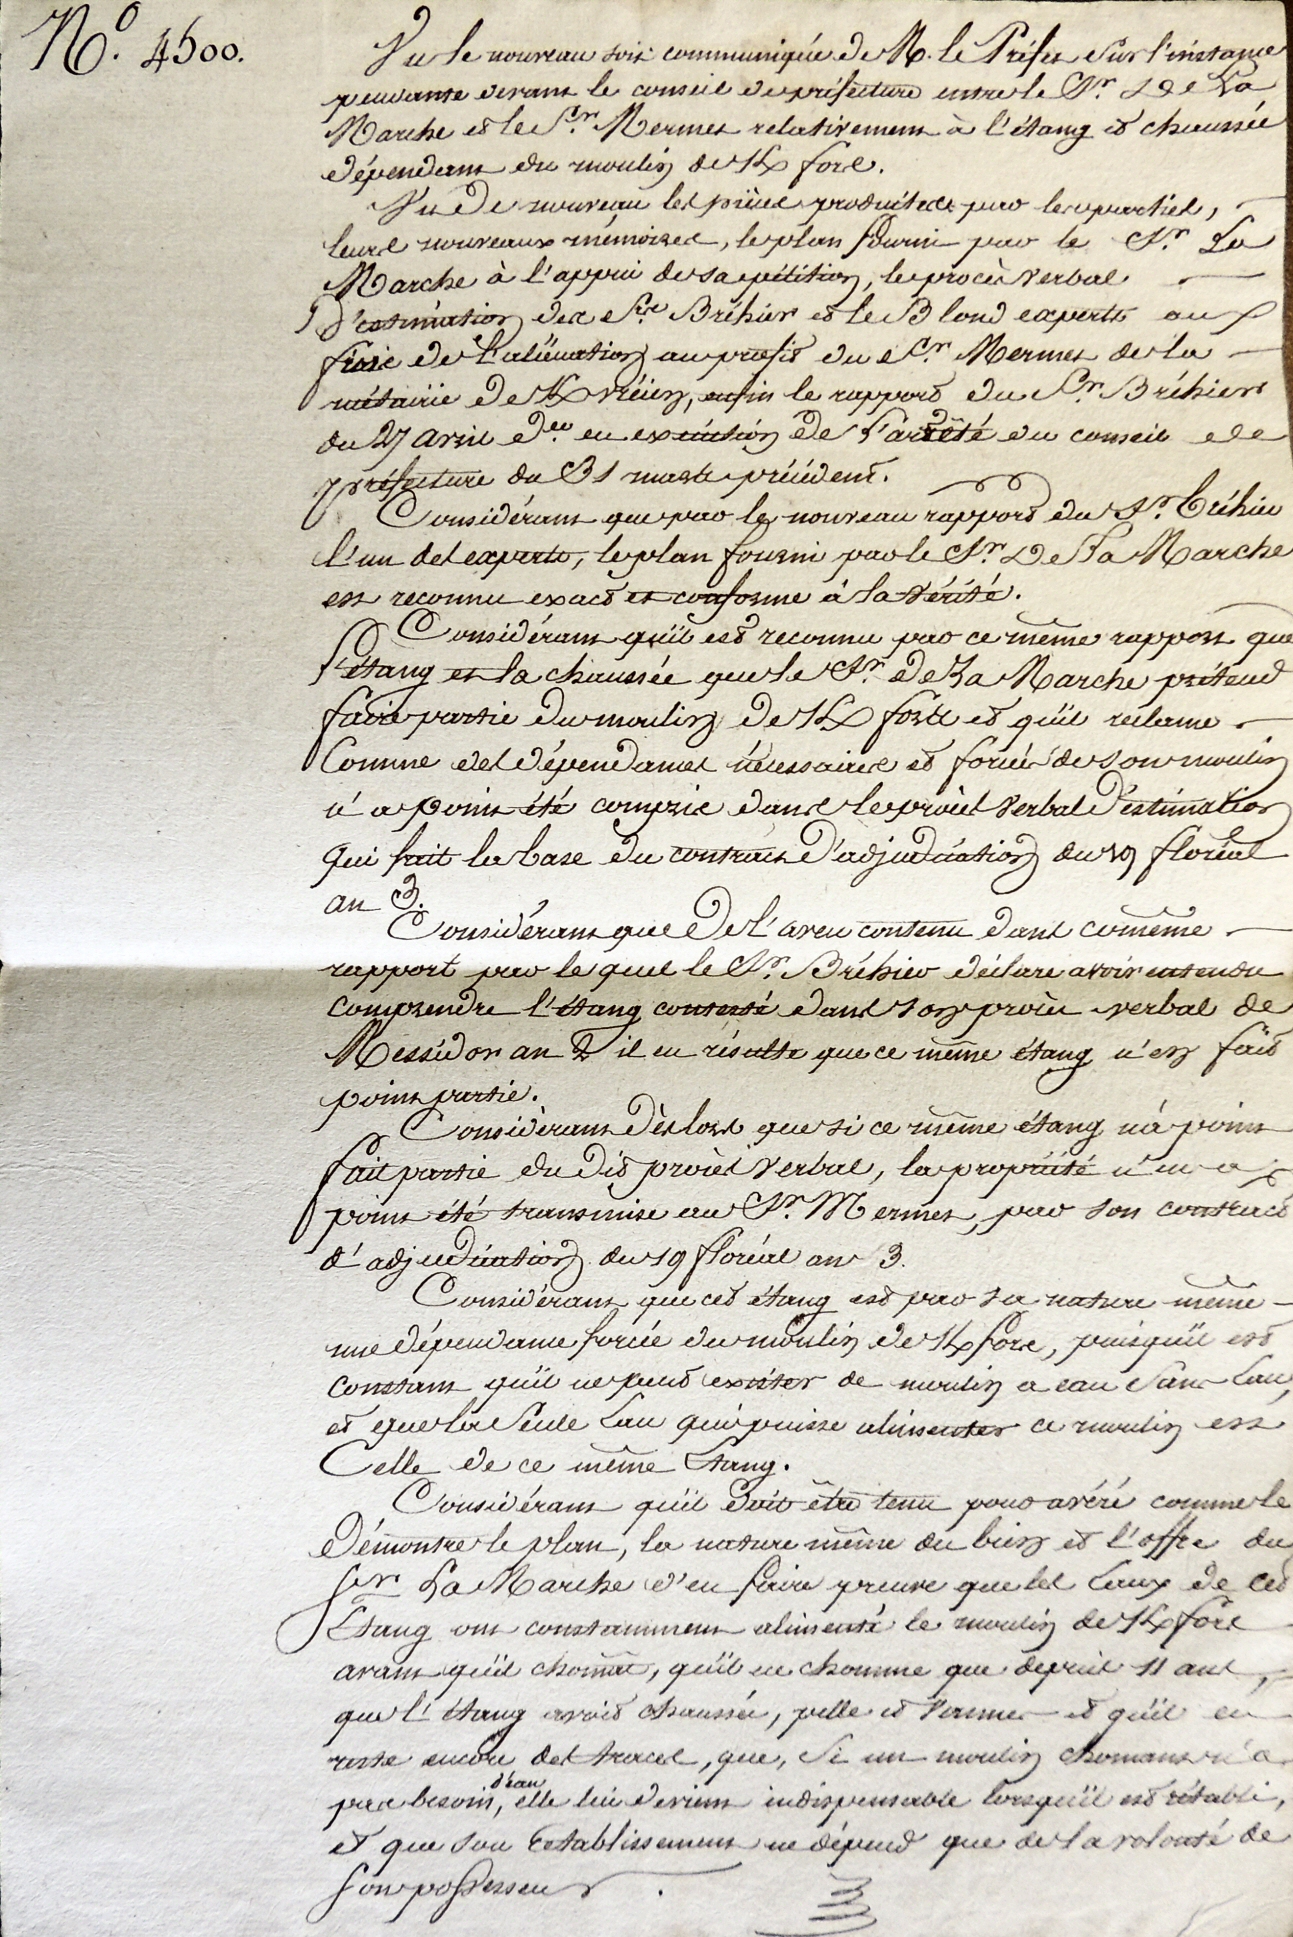 N.º 4500.
Vu le nouveau soit communiquée de M. le Préfet sur l'instance
pendante devant le conseil de préfecture entre le Sr. De La
Marche et le Sr. Mermet relativement à l'étang et chaussée
dépendant du moulin de Kfore.
Vu De nouveau les pièces produites par les parties,
leurs nouveaux mémoires, le plan fourni par le Sr. La
Marche à l'appui de sa pétition, le procès verbal
D'estimation des Srs Bréhier et le Blond experts aux
fins de l'aliénation au profit du Sr. Mermet de la
métairie de enfin le rapport du Sr. Bréhier
du 27 avril der en exécution de l'arrêté du conseil de
préfecture du 31 mars précédent.
Considérant que par le nouveau rapport du Sr. Bréhier
l'un des experts, le plan fourni par le Sr. De La Marche
est reconnu exact et conforme à la vérité.
Considérant qu'il est reconnu par ce même rapport que
l'étang et la chaussée que le Sr. de La Marche prétend
faire partie du moulin de Kfore et qu'il reclame
Comme des dépendances nécessaires et forcées de son moulin
n'a point été compris dans le procès verbal d'estimation
qui fait la base du contract d'adjudication du 19 floréal
an 3.
Considérant que De l'aveu contenu dans ce même
rapport par le quel le Sr. Bréhier déclare avoir entendu
comprendre l'étang contesté dans son procès verbal de
Messidor an 2 il en résulte que ce même étang n'en fait
point partie.
Considérant Dès lors que si ce même étang n'a point
fait partie du dit procès verbal, la propriété n'en a
point été transmise au Sr. Mermet, par son contract
d'adjudication du 19 floréal an 3.
Considérant que cet étang est par sa nature même
une dépendance forcée du moulin de Kfore, puisqu'il est
constant qu'il ne peut exister de moulin a eau sans Eau,
et que la seule Eau qui puisse alimenter ce moulin est
Celle de ce même Etang.
Considérant qu'il doit être tenu pour avéré comme le
Démontre le plan, la nature même du bien et l'offre du
Sr La Marche d'en faire preuve que les Eaux de cet
Etang ont constamment alimenté le moulin de Kfore
avant qu'il chomat, qu'il ne chomme que depuis 11 ans,
que l'étang avoit chaussée, pelle et Vannes et qu'il en
reste encore des traces, que, si un moulin chomant n'a
pas besoin d'eau, elle lui devient indispensable lorsqu'il est rétabli,
et que son retablissement ne dépend que de la volonté de
son possesseur.